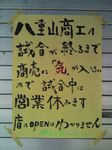 八重山商工の
試合が終るまで
商売に「気」が入い
ので試合中は
営業休みます
店のOPENはわかりません